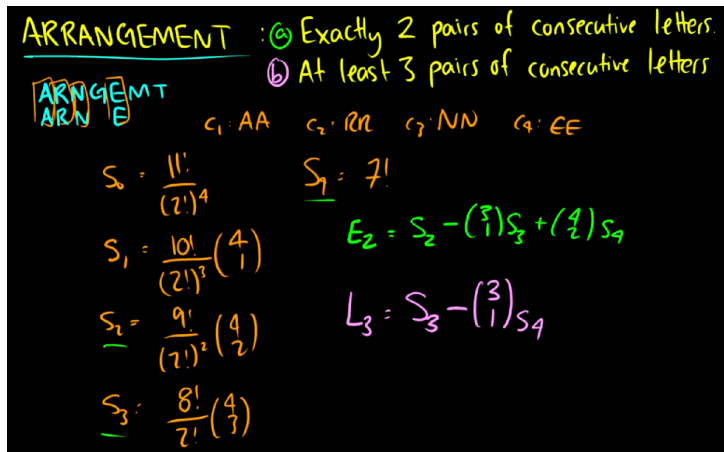 ARRANGEMENT : ⓐ Exactly 2 pairs of consecutive letters.
ⓑ At least 3 pairs of consecutive letters
ARNGEMT
ARN E
C₁: AA C₂: RR C₃: NN C₄: EE
S₀ = 11!/(2!)⁴
S₄ = 7!
S₁ = 10!/(2!)³ (4 1)
E₂ = S₂ - (3 1)S₃ + (4 2)S₄
S₂ = 9!/(2!)² (4 2)
L₃ = S₃ - (3 1)S₄
S₃ = 8!/2! (4 3)